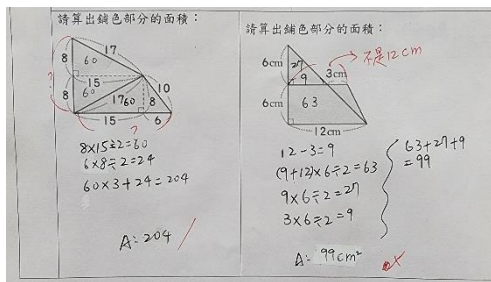 請算出鋪色部分的面積：
8
17
60
15
8
60
1760
8
10
15
6
8×15÷2=60
6×8÷2=24
60×3+24=204
A:204
請算出鋪色部分的面積：
6cm
27
9
3cm
不是12cm
6cm
63
12cm
12-3=9
(9+12)×6÷2=63
9×6÷2=27
3×6÷2=9
63+27+9
=99
A: 99cm²